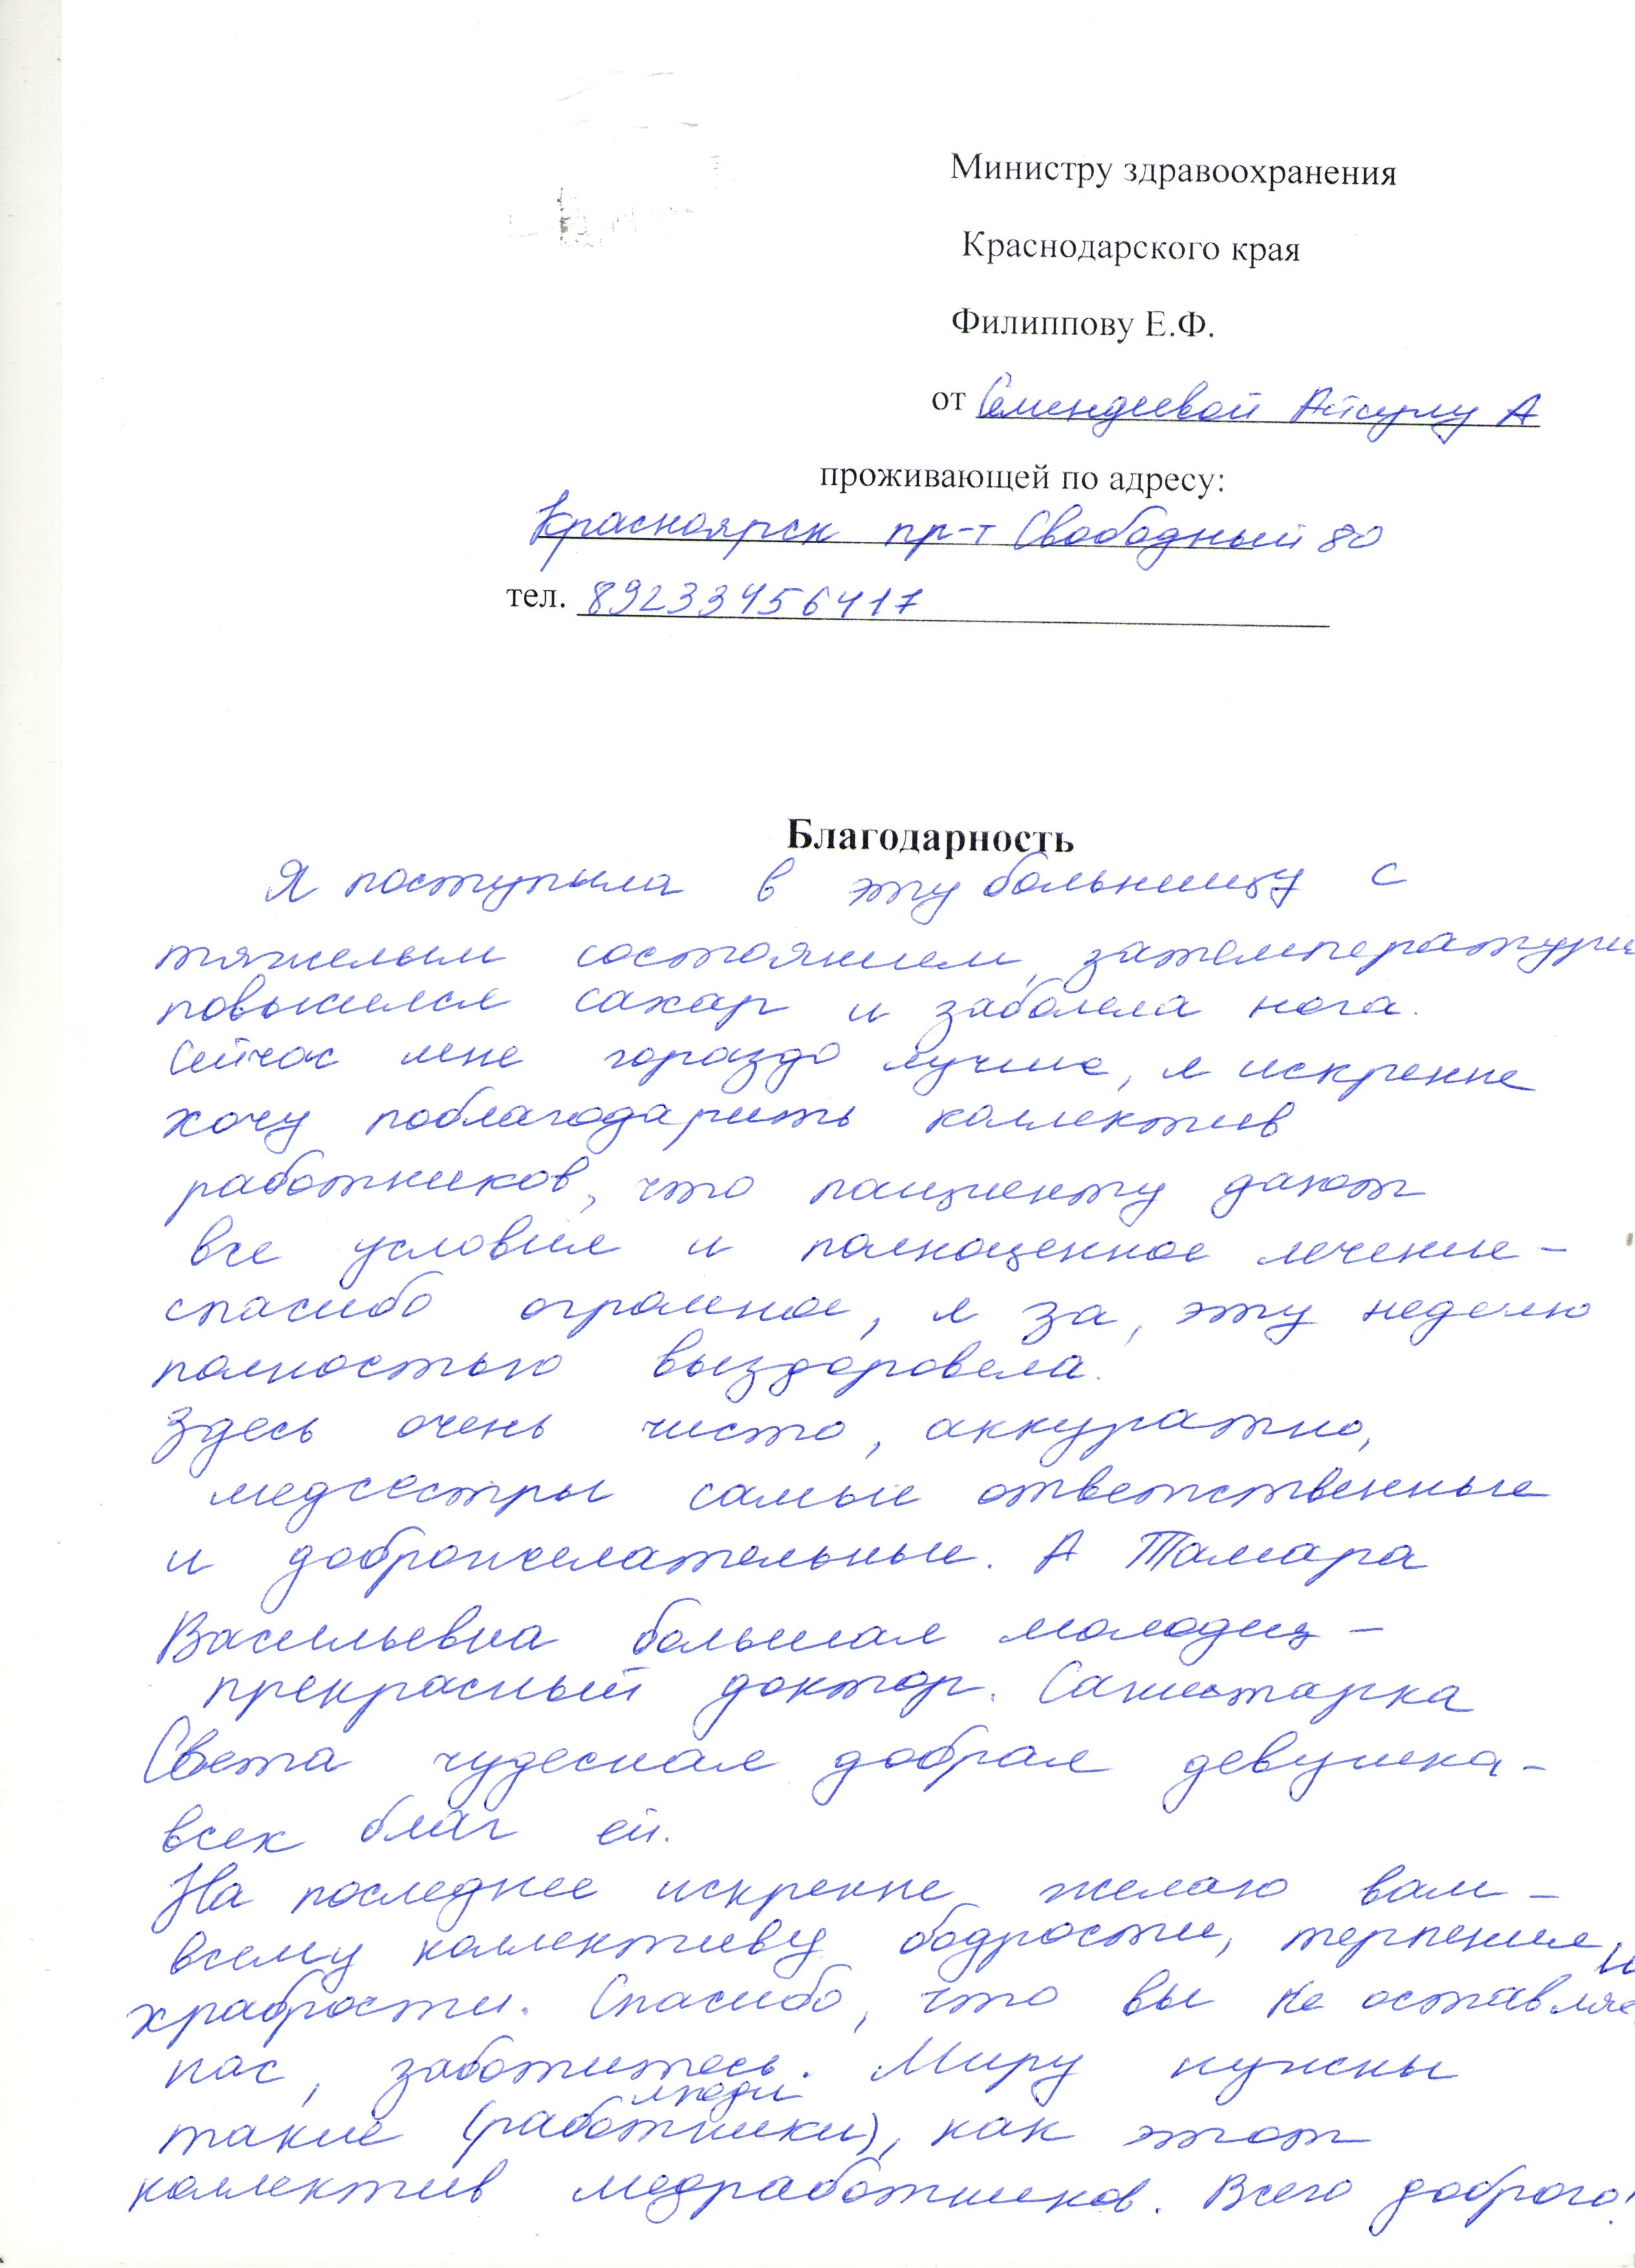 Министру здравоохранения
Краснодарского края
Филиппову Е.Ф.
от Семендеевой А
проживающей по адресу:
Красноярск пр-т Свободный 80
тел. 89233456417
Благодарность
Я поступила в эту больницу с
тяжелым состоянием,
повышелся сахар и заболела нога.
Сейчас мне гораздо лучше, я искренне
хочу поблагодарить коллектив
работников, что пациенту дают
все условия и полноценное лечение –
спасибо огромное, я за, эту неделю
полностью выздоровела.
Здесь очень чисто, аккуратно,
медсестры самые ответственные
и доброжелательные. А Тамара
Васильевна большая молодец –
прекрасный доктор. Санитарка
Света чудесная добрая девушка –
всех благ ей.
На последнее искренне желаю вам –
всему коллективу бодрости, терпения, и
храбрости. Спасибо, что вы не оставляе
нас, заботитесь. Миру нужны
люди
такие (работники), как этот
коллектив медработников. Всего доброго!